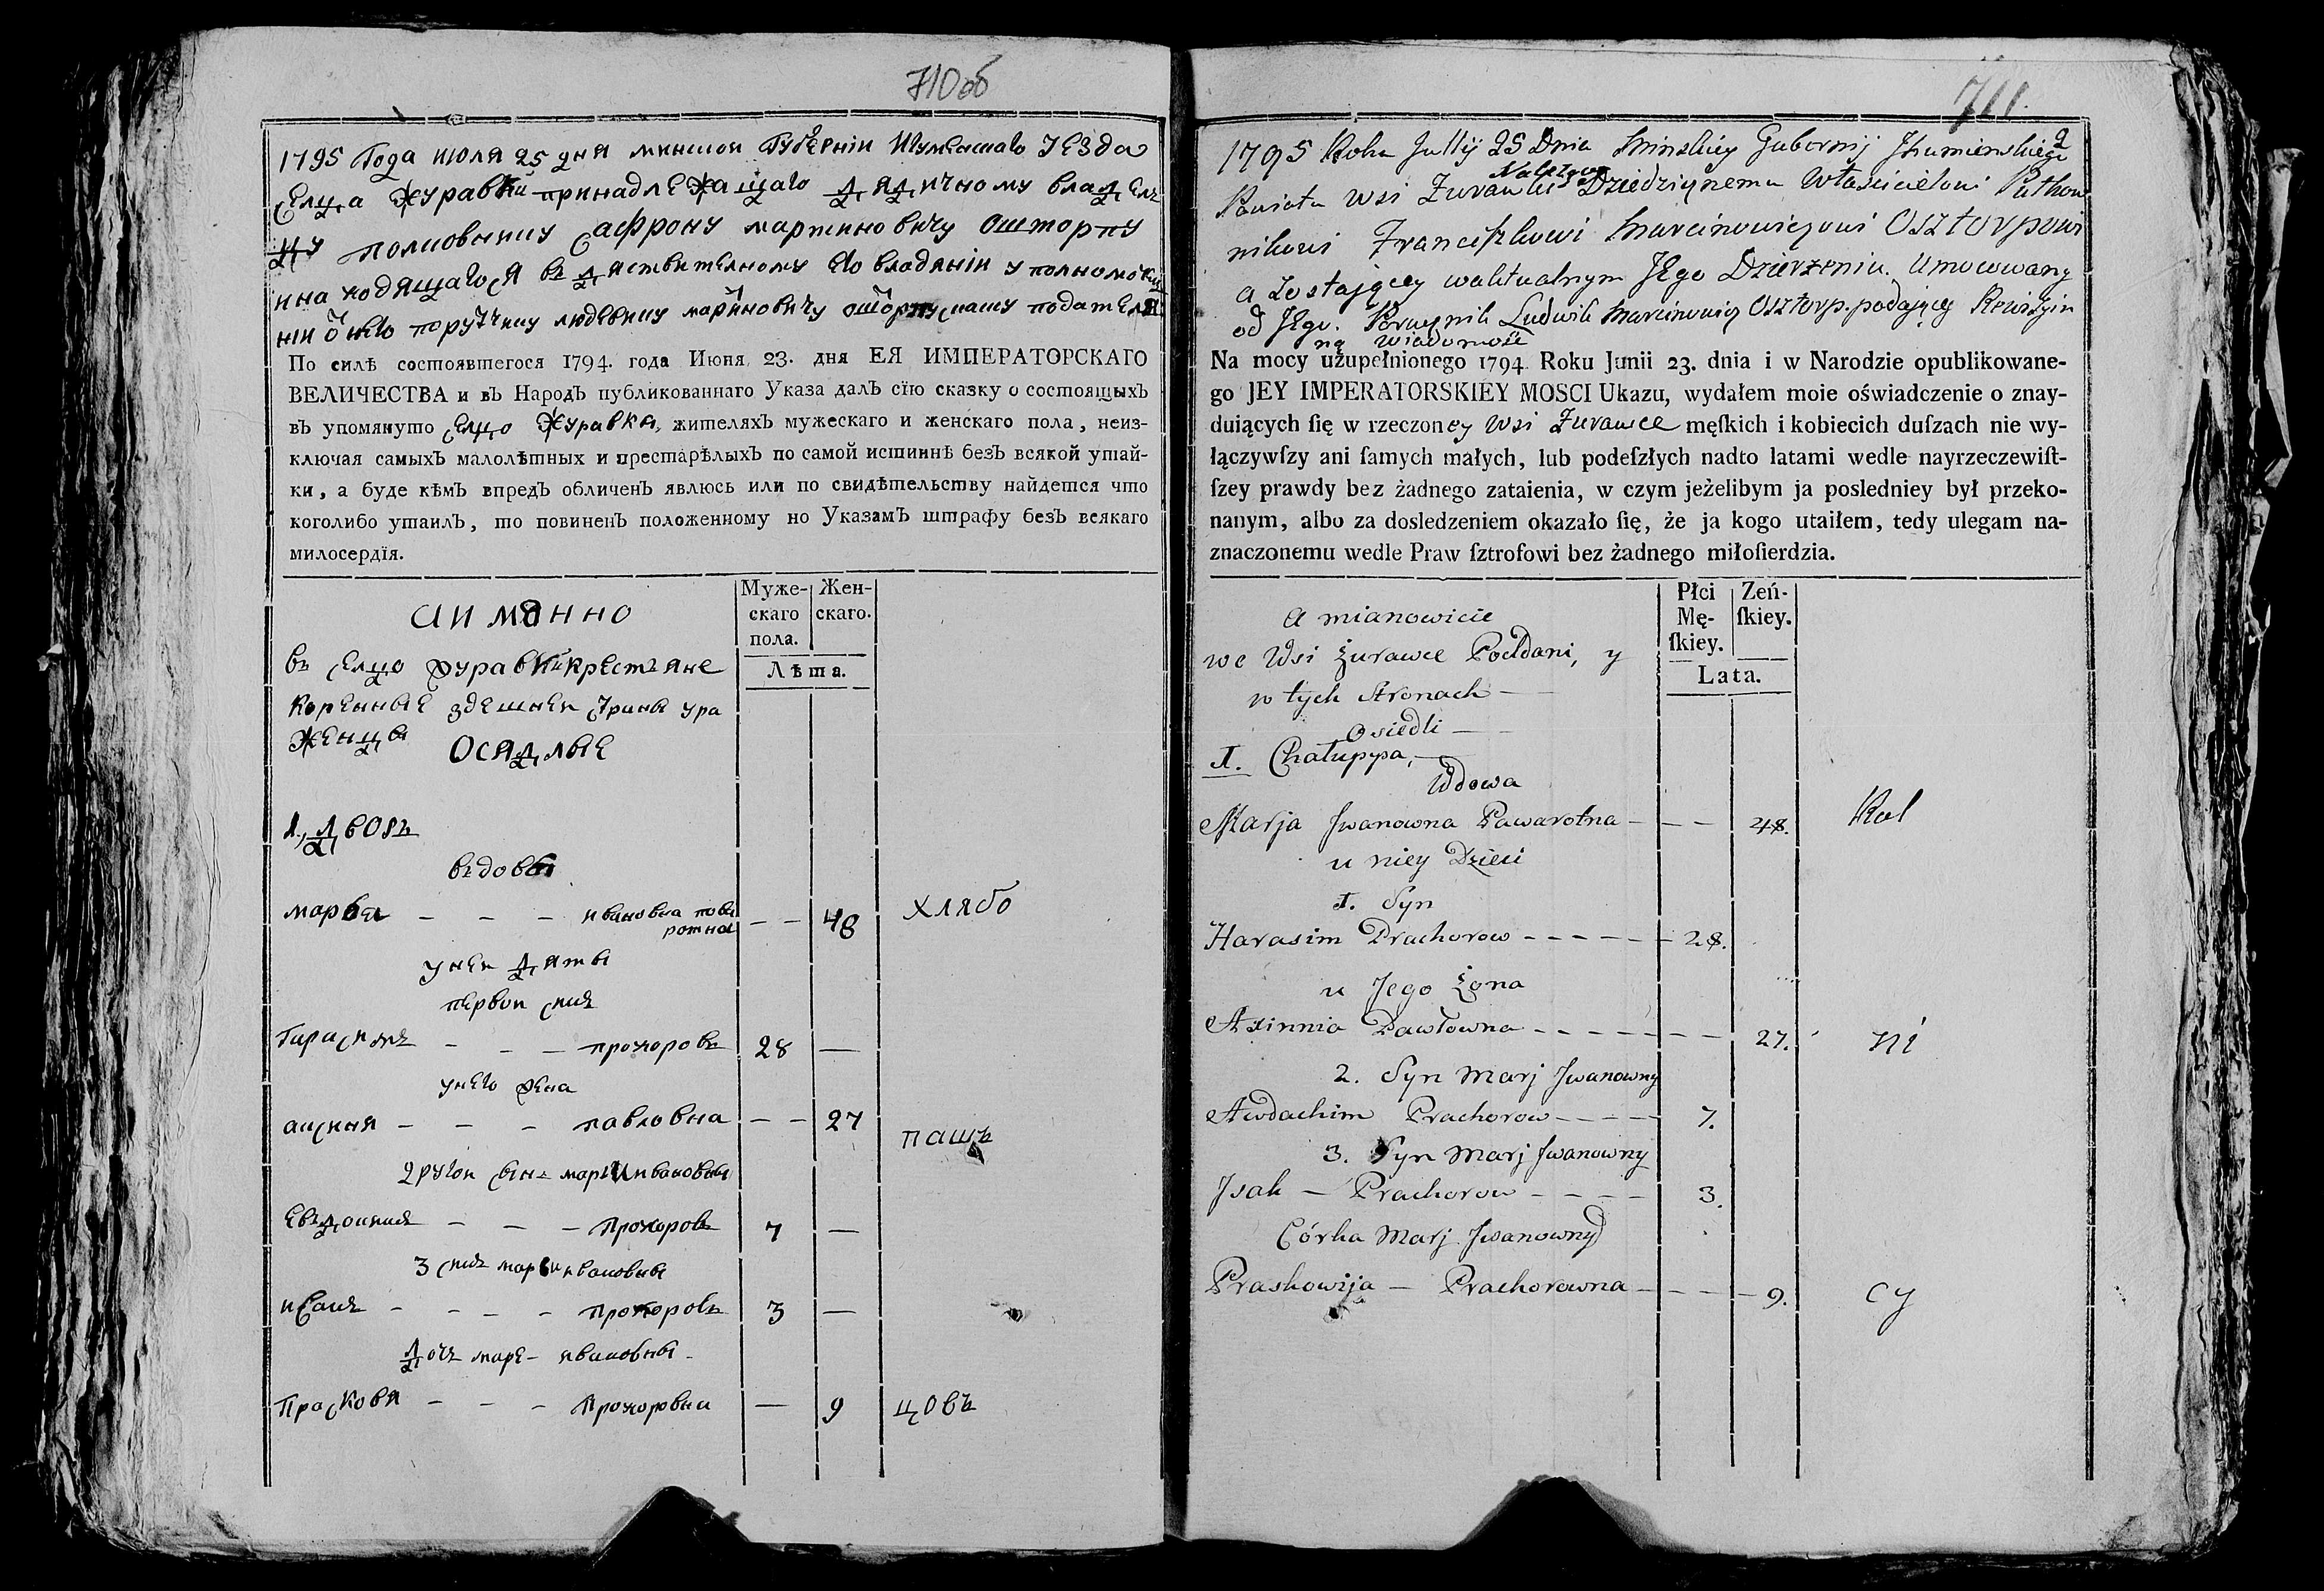 710об
1795 Года июля 25 дня минской Губернiи Игуменскаго уезда
селца Журавки принадлежащаго дядичному владел
цу полковнику сафрону мартиновичу ошторпу
инаходящагося въ дяствителному его владянiи уполномочи
нiи от него поручику людвику мартиновичу ошторпу подател
По силѣ состоявшегося 1794. года Июня 23. дня ЕЯ ИМПЕРАТОРСКАГО
ВЕЛИЧЕСТВА и въ Народъ публикованнаго Указа далъ сїю сказку о состоящыхъ
въ упомянуто селцо Журавки, жителяхъ мужескаго и женскаго пола, неиз-
ключая самыхъ малолѣтныхъ и престарѣлыхъ по самой истиннѣ безъ всякой утай-
ки, а буде кѣмъ впредъ обличенъ явлюсь или по свидѣтельству найдется что
коголибо утаилъ, то повиненъ положенному по Указамъ штрафу безъ всякаго
милосердїя.
Муже-скаго пола. Жен-скаго.
Лѣта.
аименно
въ селцо журавки крестьяне
коренные здешней
женцы
осядлые
1. дворъ
въдовы
марья — — — ивановна пова
ротна — — 48
хлябо
унеи дяты
первои синъ
Гарасимъ — — — прохоровъ 28 —
унего жена
аксиня — — — павловна — — 27
пашъ
2 ругои сынъ марьи ивановны
Евъдокимъ — — — прохоровъ 7 —
3 синъ марьи ивановны
исакъ — — — — прохоровъ 3 —
дочъ маре- ивановны
Прасковя — — — Прохоровна — 9
цовъ
711.
1795 Roku Julij 25 Dnia Minskiey Gubernij Jhumienskiego
Powiatu Wsi Żurawki Należący Dziedzicznemu Właścicielowi Pułkow
nikowi Franciszkowi Marcinowiczowi Osztorpowi
a zostającey waktualnym Jego Dzierżeniu. Umocowany
od Jego. Porucznik Ludwik Marcinowicz Osztorp. podający Rewizyin
ną wiadomość
Na mocy uzupełnionego 1794 Roku Junii 23. dnia i w Narodzie opublikowane-
go JEY IMPERATORSKIEY MOSCI Ukazu, wydałem moie oświadczenie o znay-
duiących ſię w rzeczoney Wsi Żurawce męſkich i kobiecich duſzach nie wy-
łączywſzy ani ſamych małych, lub podeſzłych nadto latami wedle nayrzeczewiſt-
ſzey prawdy bez żadnego zataienia, w czym jeżelibym ja posledniey był przeko-
nanym, albo za dosledzeniem okazało ſię, że ja kogo utaiłem, tedy ulegam na-
znaczonemu wedle Praw ſztrofowi bez żadnego miłoſierdzia.
Płci Mę-ſkiey. Zeń-ſkiey.
Lata.
A mianowicie
we Wsi Żurawce Poddani, y
w tych Stronach —
Osiedli — —
I. Chałuppa,
Wdowa
Marja Jwanowna Pawarotna — — — 48.
Rol
u niey Dzieci
1. Syn
Harasim Prachorow — — — — — 28.
u Jego Żona
Axinnia Pawłowna — — — — — — 27.
ni
2. Syn Marj Jwanowny
Awdachim Prachorow — — — — 7.
3. Syn Marj Jwanowny
Jsak — Prachorow — — — — 3.
Córka Marj Jwanowny
Praskowija — Prachorowna — — — — 9.
cy